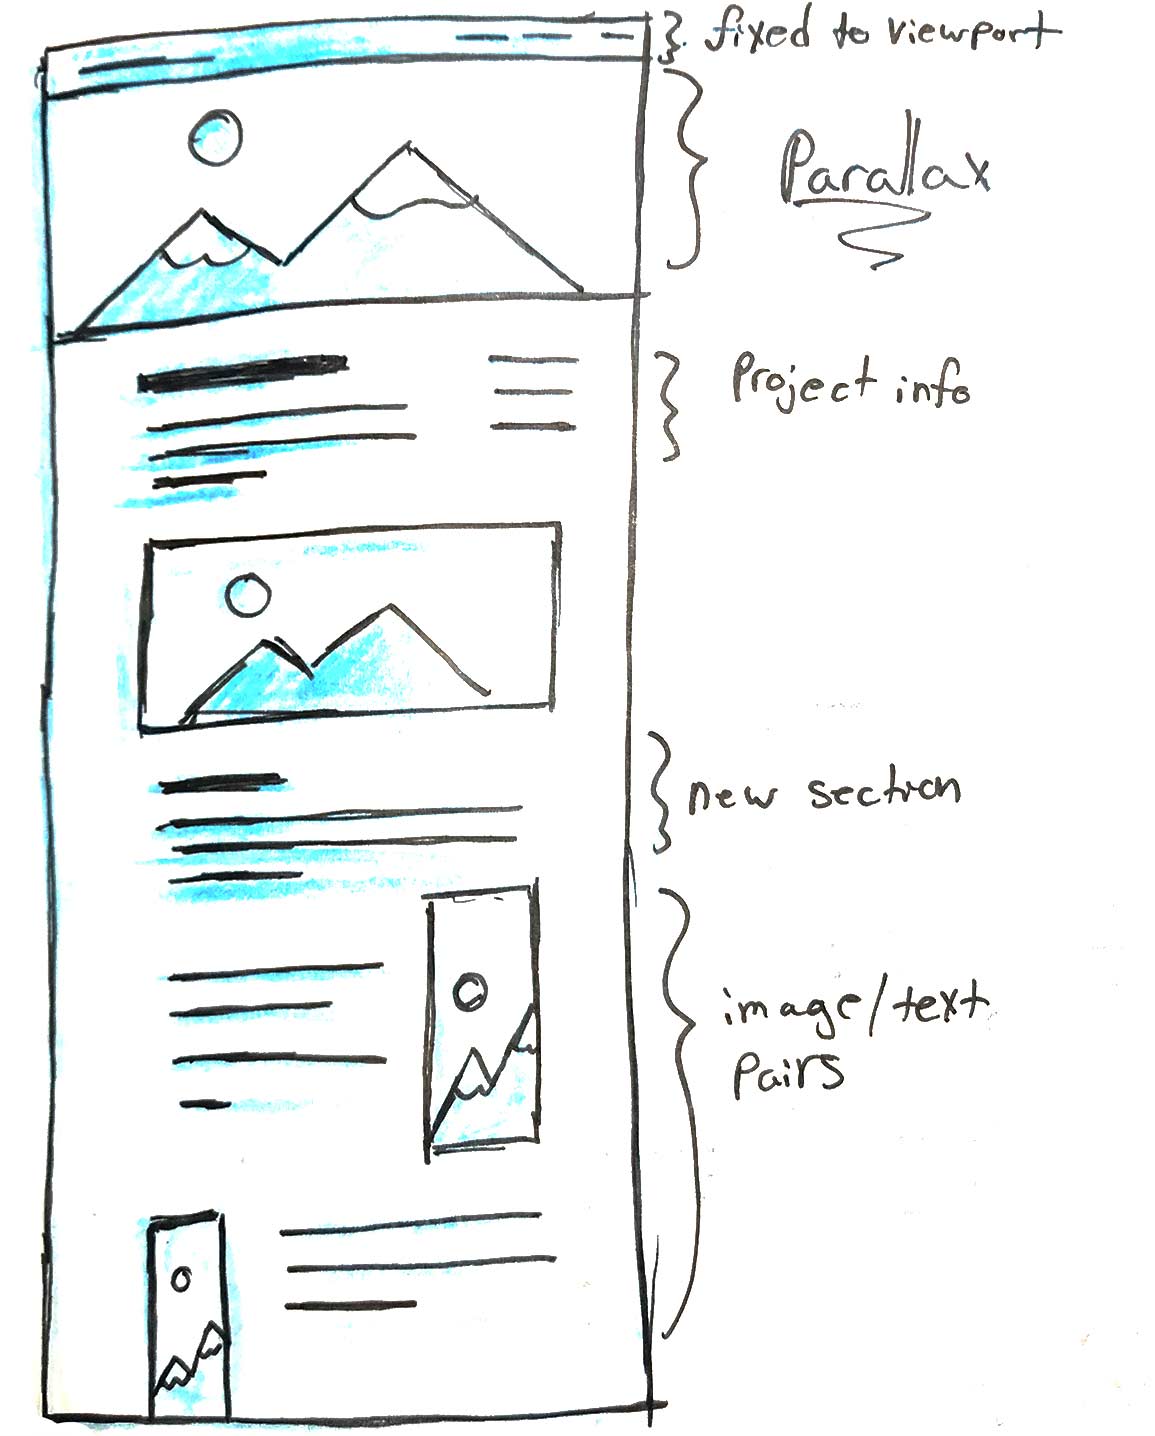 fixed to viewport
Parallax
Project info
new section
image/text
Pairs